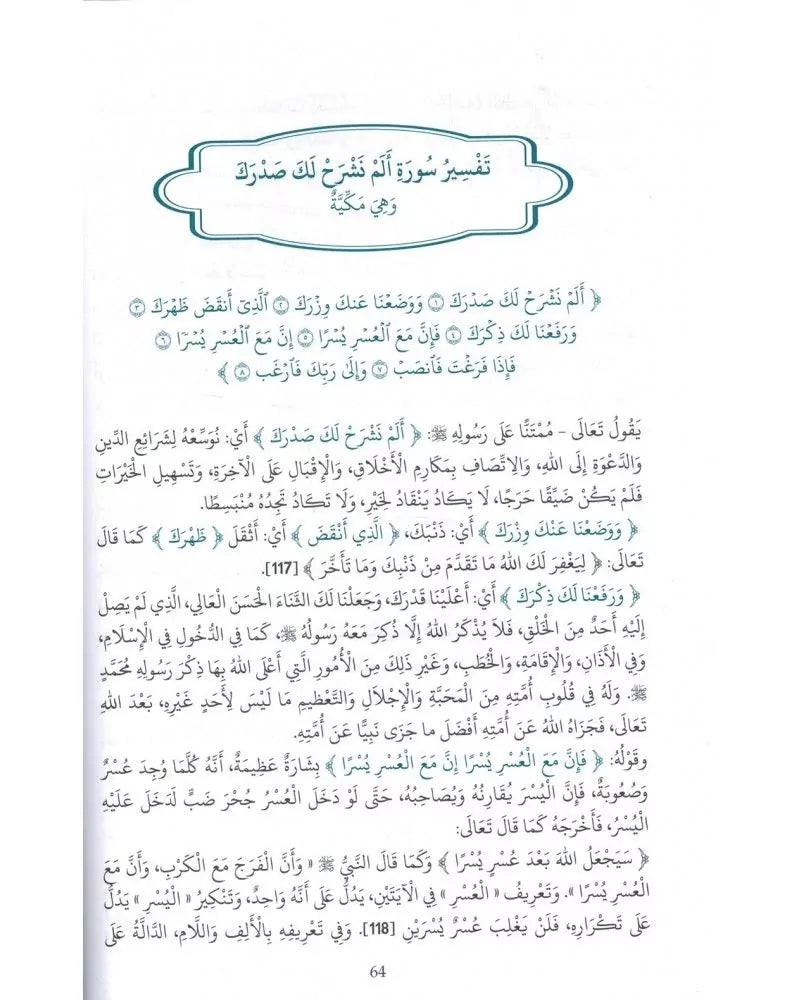 تَفْسِيرُ سُورَةِ أَلَمْ نَشْرَحْ لَكَ صَدْرَكَ
وَهِيَ مَكِّيَّةٌ
﴿ أَلَمْ نَشْرَحْ لَكَ صَدْرَكَ ١ وَوَضَعْنَا عَنكَ وِزْرَكَ ٢ ٱلَّذِىٓ أَنقَضَ ظَهْرَكَ ٣
وَرَفَعْنَا لَكَ ذِكْرَكَ ٤ فَإِنَّ مَعَ ٱلْعُسْرِ يُسْرًا ٥ إِنَّ مَعَ ٱلْعُسْرِ يُسْرًا ٦
فَإِذَا فَرَغْتَ فَٱنصَبْ ٧ وَإِلَىٰ رَبِّكَ فَٱرْغَب ٨ ﴾
يَقُولُ تَعَالَى - مُمْتَنًّا عَلَى رَسُولِهِ ﷺ: ﴿ أَلَمْ نَشْرَحْ لَكَ صَدْرَكَ ﴾ أَيْ: نُوَسِّعْهُ لِشَرَائِعِ الدِّينِ
وَالدَّعْوَةِ إِلَى اللهِ، وَالِاتِّصَافِ بِمَكَارِمِ الْأَخْلَاقِ، وَالْإِقْبَالِ عَلَى الْآخِرَةِ، وَتَسْهِيلِ الْخَيْرَاتِ
فَلَمْ يَكُنْ ضَيِّقًا حَرَجًا، لَا يَكَادُ يَنْقَادُ لِخَيْرٍ، وَلَا تَكَادُ تَجِدُهُ مُنْبَسِطًا.
﴿ وَوَضَعْنَا عَنْكَ وِزْرَكَ ﴾ أَيْ: ذَنْبَكَ، ﴿ الَّذِي أَنْقَضَ ﴾ أَيْ: أَثْقَلَ ﴿ ظَهْرَكَ ﴾ كَمَا قَالَ
تَعَالَى: ﴿ لِيَغْفِرَ لَكَ اللهُ مَا تَقَدَّمَ مِنْ ذَنْبِكَ وَمَا تَأَخَّرَ ﴾ [117].
﴿ وَرَفَعْنَا لَكَ ذِكْرَكَ ﴾ أَيْ: أَعْلَيْنَا قَدْرَكَ، وَجَعَلْنَا لَكَ الثَّنَاءَ الْحَسَنَ الْعَالِي، الَّذِي لَمْ يَصِلْ
إِلَيْهِ أَحَدٌ مِنَ الْخَلْقِ، فَلَا يُذْكَرُ اللهُ إِلَّا ذُكِرَ مَعَهُ رَسُولُهُ ﷺ، كَمَا فِي الدُّخُولِ فِي الْإِسْلَامِ،
وَفِي الْأَذَانِ، وَالْإِقَامَةِ، وَالْخُطَبِ، وَغَيْرِ ذَلِكَ مِنَ الْأُمُورِ الَّتِي أَعْلَى اللهُ بِهَا ذِكْرَ رَسُولِهِ مُحَمَّدٍ
ﷺ. وَلَهُ فِي قُلُوبِ أُمَّتِهِ مِنَ الْمَحَبَّةِ وَالْإِجْلَالِ وَالتَّعْظِيمِ مَا لَيْسَ لِأَحَدٍ غَيْرِهِ، بَعْدَ اللهِ
تَعَالَى، فَجَزَاهُ اللهُ عَنْ أُمَّتِهِ أَفْضَلَ ما جَزَى نَبِيًّا عَنْ أُمَّتِهِ.
وَقَوْلُهُ: ﴿ فَإِنَّ مَعَ الْعُسْرِ يُسْرًا إِنَّ مَعَ الْعُسْرِ يُسْرًا ﴾ بِشَارَةٌ عَظِيمَةٌ، أَنَّهُ كُلَّمَا وُجِدَ عُسْرٌ
وَصُعُوبَةٌ، فَإِنَّ الْيُسْرَ يُقَارِنُهُ وَيُصَاحِبُهُ، حَتَّى لَوْ دَخَلَ الْعُسْرُ جُحْرَ ضَبٍّ لَدَخَلَ عَلَيْهِ
الْيُسْرُ، فَأَخْرَجَهُ كَمَا قَالَ تَعَالَى:
﴿ سَيَجْعَلُ اللهُ بَعْدَ عُسْرٍ يُسْرًا ﴾ وَكَمَا قَالَ النَّبِيُّ ﷺ « وَأَنَّ الْفَرَجَ مَعَ الْكَرْبِ، وَأَنَّ مَعَ
الْعُسْرِ يُسْرًا ». وَتَعْرِيفُ « الْعُسْرِ » فِي الْآيَتَيْنِ، يَدُلُّ عَلَى أَنَّهُ وَاحِدٌ، وَتَنْكِيرُ « الْيُسْرِ » يَدُلُّ
عَلَى تَكْرَارِهِ، فَلَنْ يَغْلِبَ عُسْرٌ يُسْرَيْنِ [118]. وَفِي تَعْرِيفِهِ بِالْأَلِفِ وَاللَّامِ، الدَّالَّةُ عَلَى
64